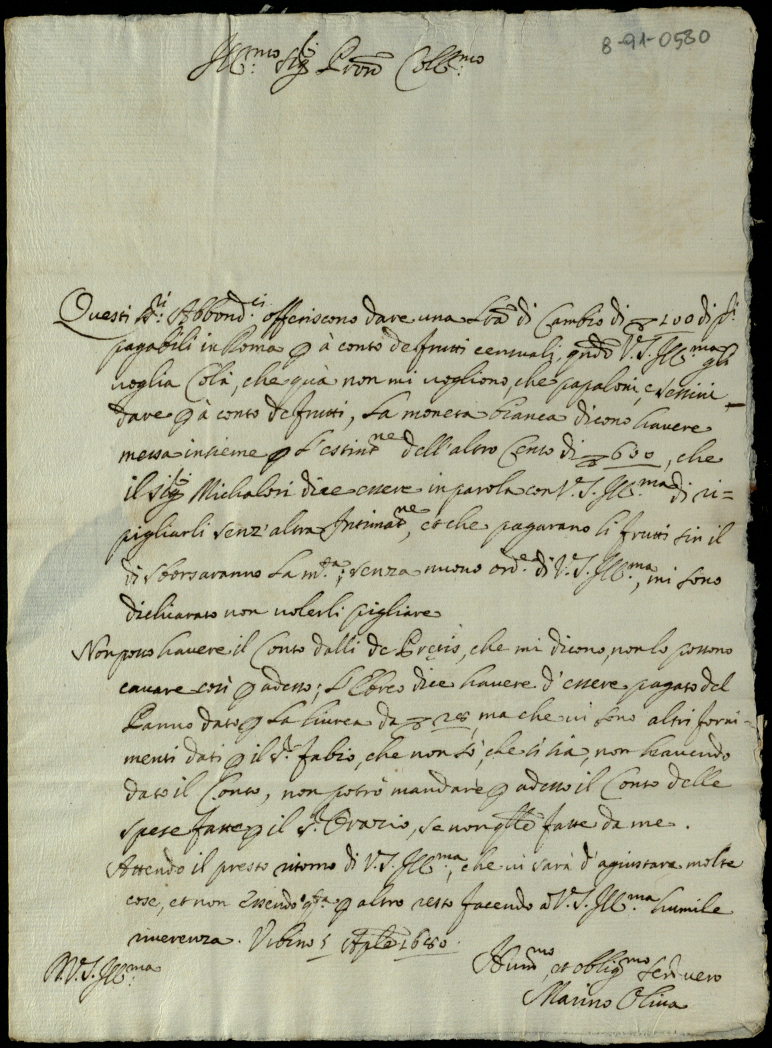 8-91-0580
Ill.mo Sig.r Pron Coll.mo
Questi SS.ri Abbond.ci offeriscono dare una Lra di Cambio di 100 di p.li
pagabili in Roma p à conto de frutti censuali, qndo V.S. Ill.ma gli
voglia Colà, che quà non mi vogliono, che papaloni, e sestini
dare p à conto de frutti, La moneta bianca dicono havere
messa insieme p l'estint.ne dell'altro Censo di 600, che
il Sig.r Michalori dice essere in parola con V.S. Ill.ma di ri=
pigliarli senz'altra Intimat.ne, et che pagarano li frutti sin il
dì sborsaranno La m.ta; senza nuovo ord.e di V.S. Ill.ma, mi sono
dichiarato non volerli pigliare
Non posso havere il Conto dalli de Precis, che mi dicono, non lo possono
cavare così p adesso; L'Ebreo dice havere d'essere pagato del
Panno dato p La livrea da 28, ma che vi sono altri forni=
menti dati p il S.r Fabio, che non sò, che si sia, non havendo
dato il Conto, non potrò mandare p adesso il Conto delle
spese fatte p il S.r Oratio, se non qlle fatte da me.
Attendo il presto ritorno di V.S. Ill.ma, che vi sarà d'agiustare molte
cose, et non Essendo q.sta p altro resto facendo à V.S. Ill.ma humile
riverenza. Urbino 5 Aple 1650.
D.V.S. Ill.ma
Hum.mo, et oblig.mo Ser. vero
Marino Oliva